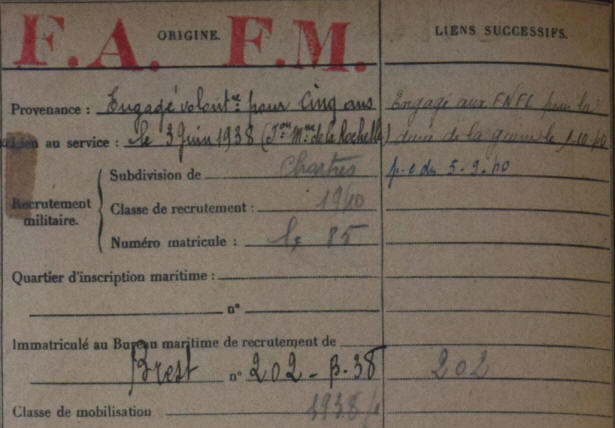 F.A. F.M.
ORIGINE.
LIENS SUCCESSIFS.
Provenance : Engagé volontre pour Cinq ans
Engagé aux FNFL pour la
Lien au service : le 3 Juin 1938 (Ion Mme de la Rochelle)
durée de la guerre le 1-10-40
Recrutement militaire.
Subdivision de Chartres
p.c du 5-9-40
Classe de recrutement : 1940
Numéro matricule : 85
Quartier d'inscription maritime :
n°
Immatriculé au Bureau maritime de recrutement de
Brest n° 202-B-38
202
Classe de mobilisation 1938